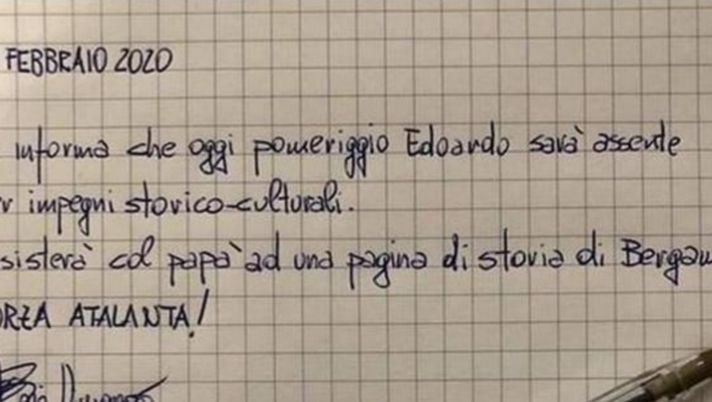 FEBBRAIO 2020
informa che oggi pomeriggio Edoardo sarà assente
r impegni storico-culturali.
sisterà col papà ad una pagina di storia di Bergam
ORZA ATALANTA!